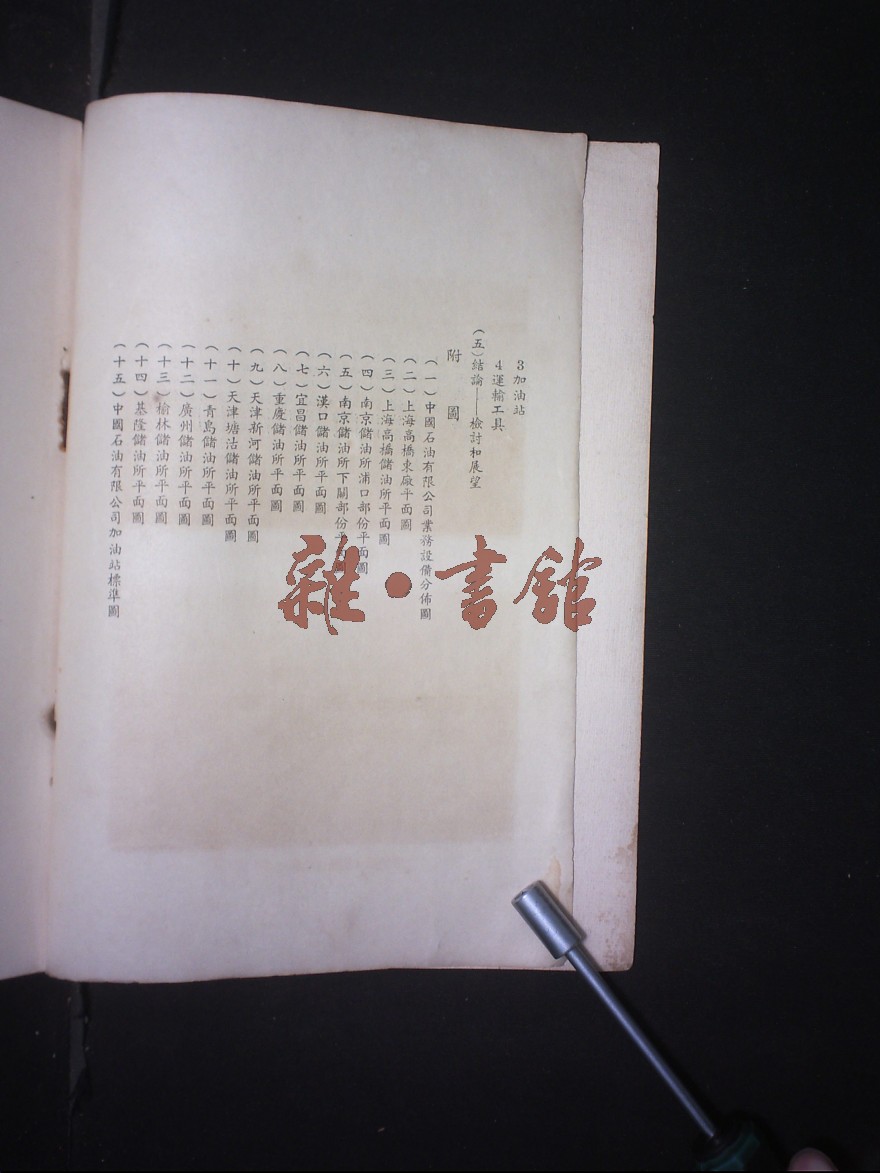 3加油站
4運輸工具
（五）結論——檢討和展望
附 圖
（一）中國石油有限公司業務設備分佈圖
（二）上海高橋東廠平面圖
（三）上海高橋儲油所平面圖
（四）南京儲油所浦口部份平面圖
（五）南京儲油所下關部份平面圖
（六）漢口儲油所平面圖
（七）宜昌儲油所平面圖
（八）重慶儲油所平面圖
（九）天津新河儲油所平面圖
（十）天津塘沽儲油所平面圖
（十一）青島儲油所平面圖
（十二）廣州儲油所平面圖
（十三）榆林儲油所平面圖
（十四）基隆儲油所平面圖
（十五）中國石油有限公司加油站標準圖
雜·書館